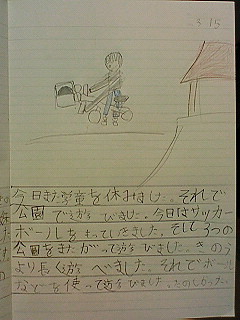 3 15
今日また学童を休みました。それで
公園であそびました。今日はサッカー
ボールをもっていきました。そして3つの
公園をまたがってあそびました。きのう
より長くあそべました。それでボール
などを使ってあそびました。たのしかった。